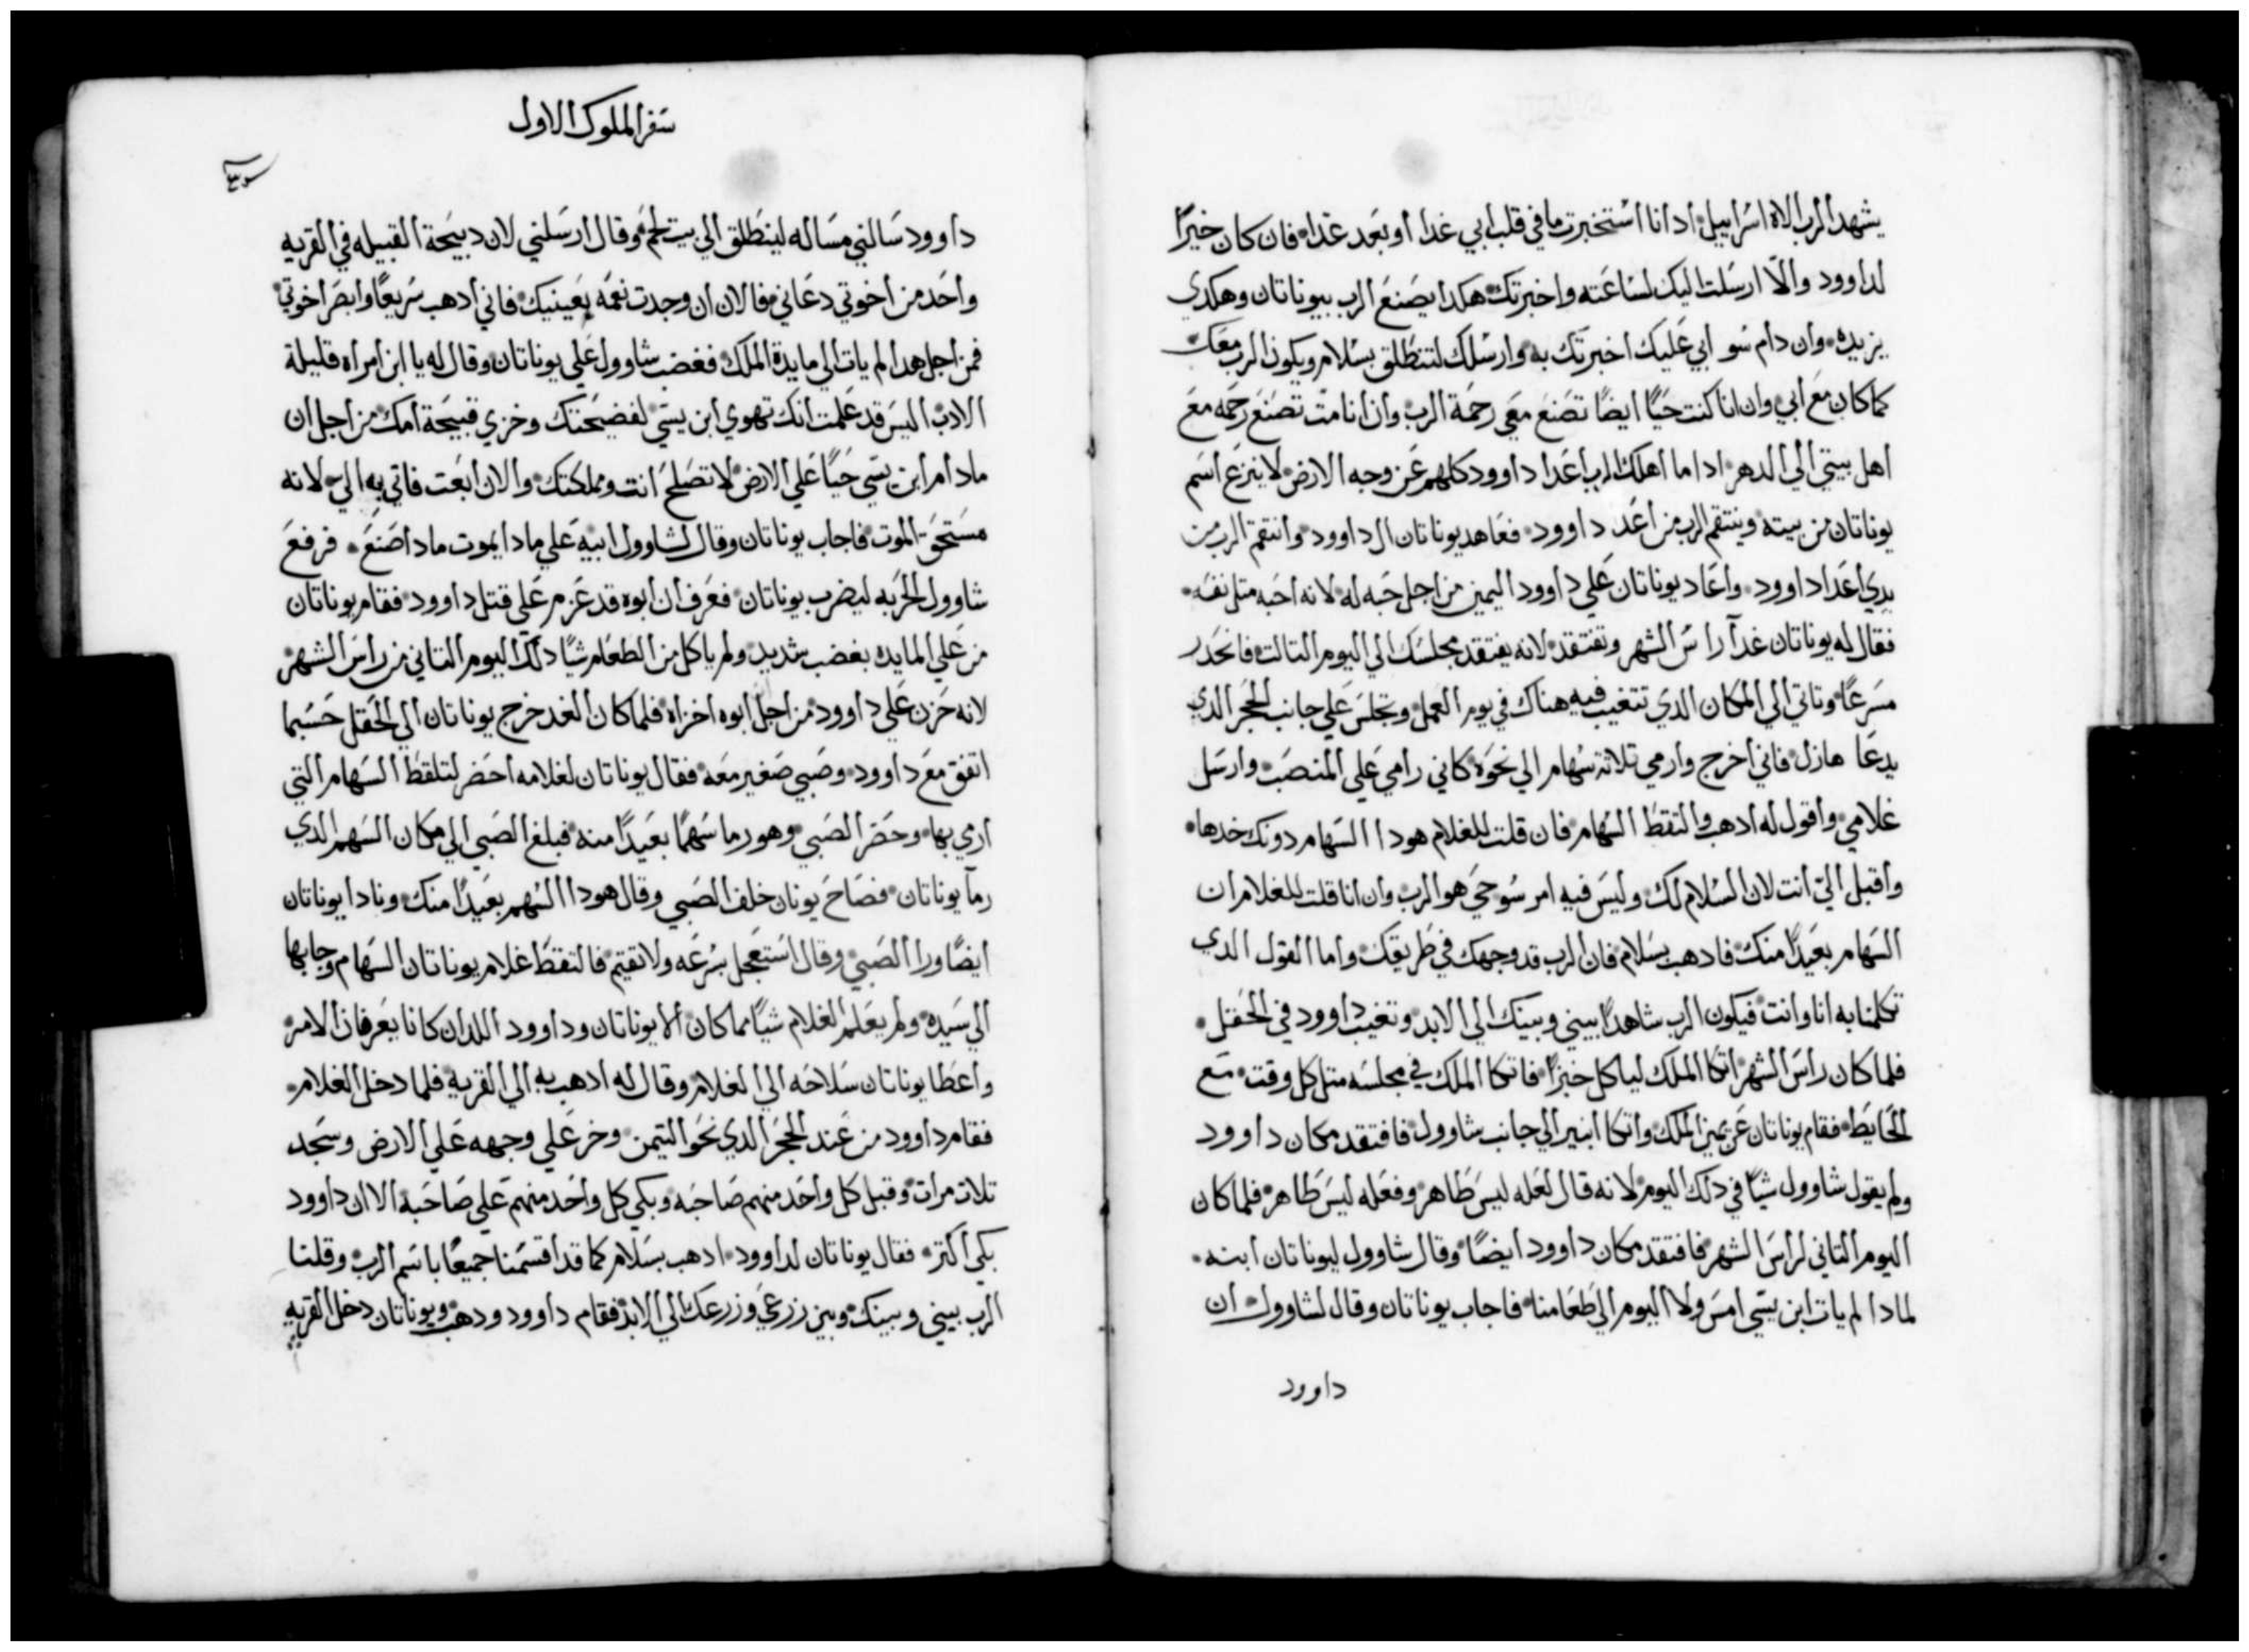 يشهد الرب الاه اسراييل ادا انا استخبرت ما في قلب ابي غدا او بعد غدا فان كان خيرًا
لداوود والّا ارسلت اليك لساعته واخبرتك هكدا يصنع الرب بيوناتان وهكدي
يزيده وان دام سو ابي عليك اخبرتك به وارسلك لتنطلق بسلام ويكون الرب معك
كما كان مع ابي وان انا كنت حيًا ايضًا تصنع معي رحمة الرب وان انا مت تصنع رحمه مع
اهل بيتي الي الدهر ادا ما اهلك الرب اعدا داوود كلهم عن وجه الارض لا ينزع اسم
يوناتان من بيته وينتقم الرب من اعد داوود فعاهد يوناتان ال داوود وانتقم الرب من
يدي اعدا داوود واعاد يوناتان علي داوود اليمين من اجل حبه له لانه احبه متل نفسه
فقال له يوناتان غدآ راس الشهر وتفتقد لانه يفتقد مجلسك الي اليوم التالت فانحدر
مسرعًا وتاتي الي المكان الدي تتغيب فيه هناك في يوم العمل وتجلس علي جانب الحجر الدي
يدعا هازل فاني اخرج وارمي تلاتة سهام الي نحوه كاني رامي علي المنصب وارسل
غلامي واقول له ادهب والتقط السهام فان قلت للغلام هودا السهام دونك خدها
واقبل اليّ انت لان السلام لك وليس فيه امر سو حي هو الرب وان انا قلت للغلام ان
السهام بعيدًا منك فادهب بسلام فان الرب قد وجهك في طريقك واما القول الدي
تكلمنا به انا وانت فيكون الرب شاهدًا بيني وبينك الي الابد وتغيب داوود في الحقل
فلما كان راس الشهر اتكا الملك لياكل خبزًا فاتكا الملك في مجلسه متل كل وقت مع
الحايط فقام يوناتان عن يمين الملك واتكا ابنير الي جانب شاوول فافتقد مكان داوود
ولم يقول شاوول شيًا في دلك اليوم لانه قال لعله ليس طاهر وفعله ليس طاهر فلما كان
اليوم التاني لراس الشهر فافتقد مكان داوود ايضًا وقال شاوول ليوناتان ابنه
لمادا لم يات ابن يسّي امس ولا اليوم الي طعامنا فاجاب يوناتان وقال لشاوول ان
داوود
سفر الملوك الاول
داوود سالني مساله لينطلق الي بيت لحم وقال ارسلني لان دبيحة القبيله في القريه
واحد من اخوتي دعاني فالان ان وجدت نعمه بعينيك فاني ادهب سريعًا وابصر اخوتي
فمن اجل هدا لم يات الي مايدة الملك فغضب شاوول علي يوناتان وقال له يا ابن امراه قليلة
الادب اليس قد علمت انك تهوي ابن يسّي لفضيحتك وخزي قبيحة امك من اجل ان
مادام ابن يسّي حيًا علي الارض لا تصلح انت ومملكتك والان ابعت فاتي به اليّ لانه
مستحق الموت فاجاب يوناتان وقال لشاوول ابيه علي مادا يموت مادا صنع فرفع
شاوول الحربه ليضرب يوناتان فعرف ان ابوه قد عزم علي قتل داوود فقام يوناتان
من علي المايده بغضب شديد ولم ياكل من الطعام شيًا دلك اليوم التاني من راس الشهر
لانه حزن علي داوود من اجل ابوه اخزاه فلما كان الغد خرج يوناتان الي الحقل حسبما
اتفق مع داوود وصبي صغير معه فقال يوناتان لغلامه احضر لتلقط السهام التي
ارمي بها وحضر الصبي وهو رما سهمًا بعيدًا منه فبلغ الصبي الي مكان السهم الدي
رمآ يوناتان فصاح يونان خلف الصبي وقال هودا السهم بعيدًا منك ونادا يوناتان
ايضًا ورا الصبي وقال استعجل بسرعه ولا تقيم فالتقط غلام يوناتان السهام وجابها
الي سيده ولم يعلم الغلام شيًا مما كان الا يوناتان وداوود اللدان كانا يعرفان الامر
واعطا يوناتان سلاحه الي الغلام وقال له ادهب به الي القرية فلما دخل الغلام
فقام داوود من عند الحجر الدي نحو التيمن وخر علي وجهه علي الارض وسجد
تلات مرات وقبل كل واحد منهم صاحبه وبكي كل واحد منهم علي صاحبه الا ان داوود
بكي اكتر فقال يوناتان لداوود ادهب بسلام كما قد اقسمنا جميعًا باسم الرب وقلنا
الرب بيني وبينك وبين زرعي وزرعك الي الابد فقام داوود ودهب ويوناتان دخل القريه